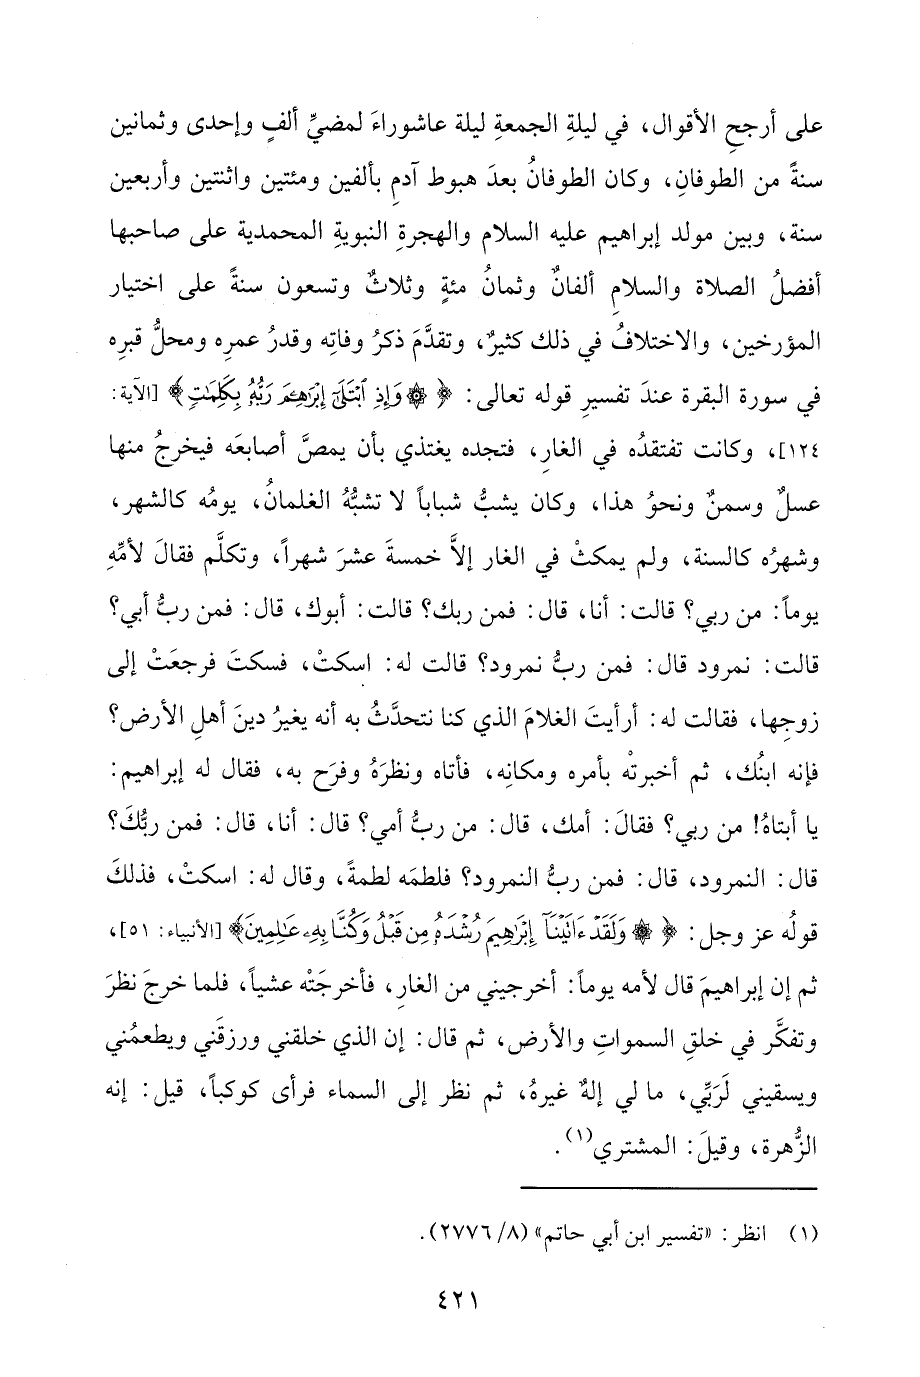 على أرجحِ الأقوال، في ليلةِ الجمعةِ ليلة عاشوراءَ لمضيِّ ألفٍ وإحدى وثمانين
سنةً من الطوفانِ، وكان الطوفانُ بعدَ هبوط آدمِ بألفين ومئتين واثنتين وأربعين
سنة، وبين مولد إبراهيم عليه السلام والهجرةِ النبويةِ المحمدية على صاحبها
أفضلُ الصلاة والسلامِ ألفانٌ وثمانُ مئةٍ وثلاثٌ وتسعون سنةً على اختيار
المؤرخين، والاختلافُ في ذلك كثيرٌ، وتقدَّمَ ذكرُ وفاتِه وقدرُ عمرِه ومحلُّ قبرِه
في سورة البقرة عندَ تفسيرِ قوله تعالى: ﴿ ۞ وَإِذِ ٱبْتَلَىٰٓ إِبْرَٰهِـۧمَ رَبُّهُۥ بِكَلِمَـٰتٍ﴾ [الآية:
١٢٤]، وكانت تفتقدُه في الغارِ، فتجده يغتذي بأن يمصَّ أصابعَه فيخرجُ منها
عسلٌ وسمنٌ ونحوُ هذا، وكان يشبُّ شباباً لا تشبُّهُ الغلمانُ، يومُه كالشهر،
وشهرُه كالسنة، ولم يمكثْ في الغار إلاَّ خمسةَ عشرَ شهراً، وتكلَّم فقالَ لأمِّهِ
يوماً: من ربي؟ قالت: أنا، قال: فمن ربك؟ قالت: أبوك، قال: فمن ربُّ أبي؟
قالت: نمرود قال: فمن ربُّ نمرود؟ قالت له: اسكتْ، فسكتَ فرجعَتْ إلى
زوجِها، فقالت له: أرأيتَ الغلامَ الذي كنا نتحدَّثُ به أنه يغيرُ دينَ أهلِ الأرض؟
فإنه ابنُك، ثم أخبرتْه بأمره ومكانِه، فأتاه ونظرَهُ وفرَح به، فقال له إبراهيم:
يا أبتاهُ! من ربي؟ فقالَ: أمك، قال: من ربُّ أمي؟ قال: أنا، قال: فمن ربُّكَ؟
قال: النمرود، قال: فمن ربُّ النمرود؟ فلطمَه لطمةً، وقال له: اسكتْ، فذلكَ
قولُه عز وجل: ﴿ ۞ وَلَقَدْ ءَاتَيْنَآ إِبْرَٰهِيمَ رُشْدَهُۥ مِن قَبْلُ وَكُنَّا بِهِۦ عَـٰلِمِينَ﴾ [الأنبياء: ٥١]،
ثم إن إبراهيمَ قال لأمه يوماً: أخرجيني من الغارِ، فأخرجَتْه عشياً، فلما خرجَ نظرَ
وتفكَّر في خلقِ السمواتِ والأرض، ثم قال: إن الذي خلقني ورزقَني ويطعمُني
ويسقيني لَرَبِّي، ما لي إلهٌ غيرهُ، ثم نظر إلى السماء فرأى كوكباً، قيل: إنه
الزُّهرة، وقيلَ: المشتري(١).
(١) انظر: «تفسير ابن أبي حاتم» (٨/ ٢٧٧٦).
٤٢١